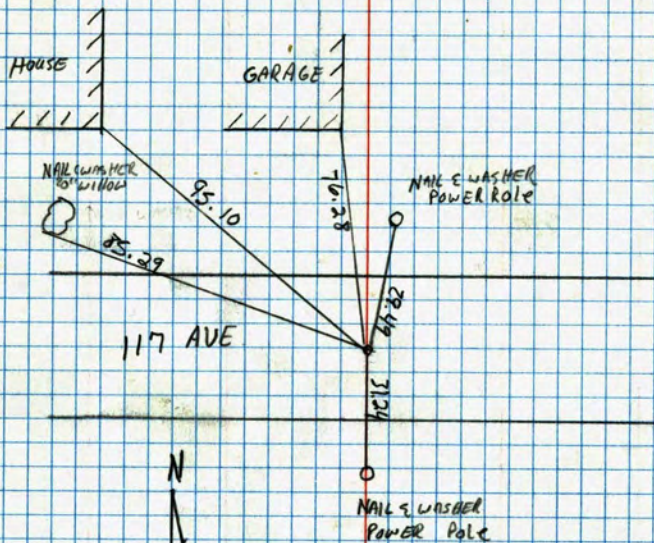 HOUSE
GARAGE
NAIL & WASHER
WILLOW
NAIL & WASHER
POWER POLE
95.10
76.28
85.29
117 AVE
31.24
N
NAIL & WASHER
POWER POLE